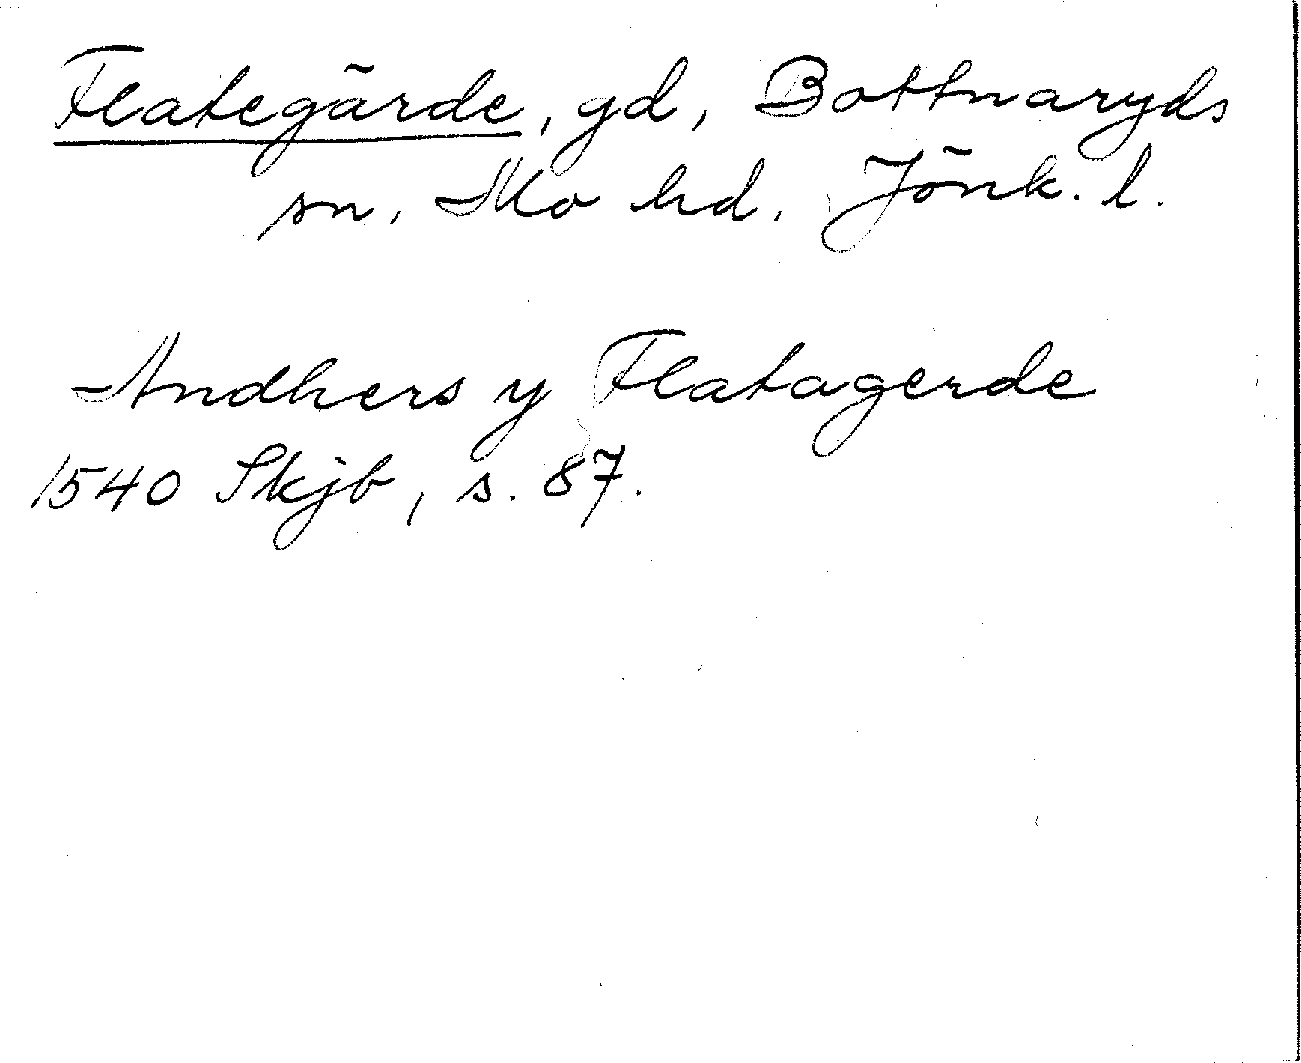 Flategärde, gd, Bottnaryds
sn, Mo hd, Jönk. l.
Andhers y Flatagerde
1540 Skjb, s. 87.